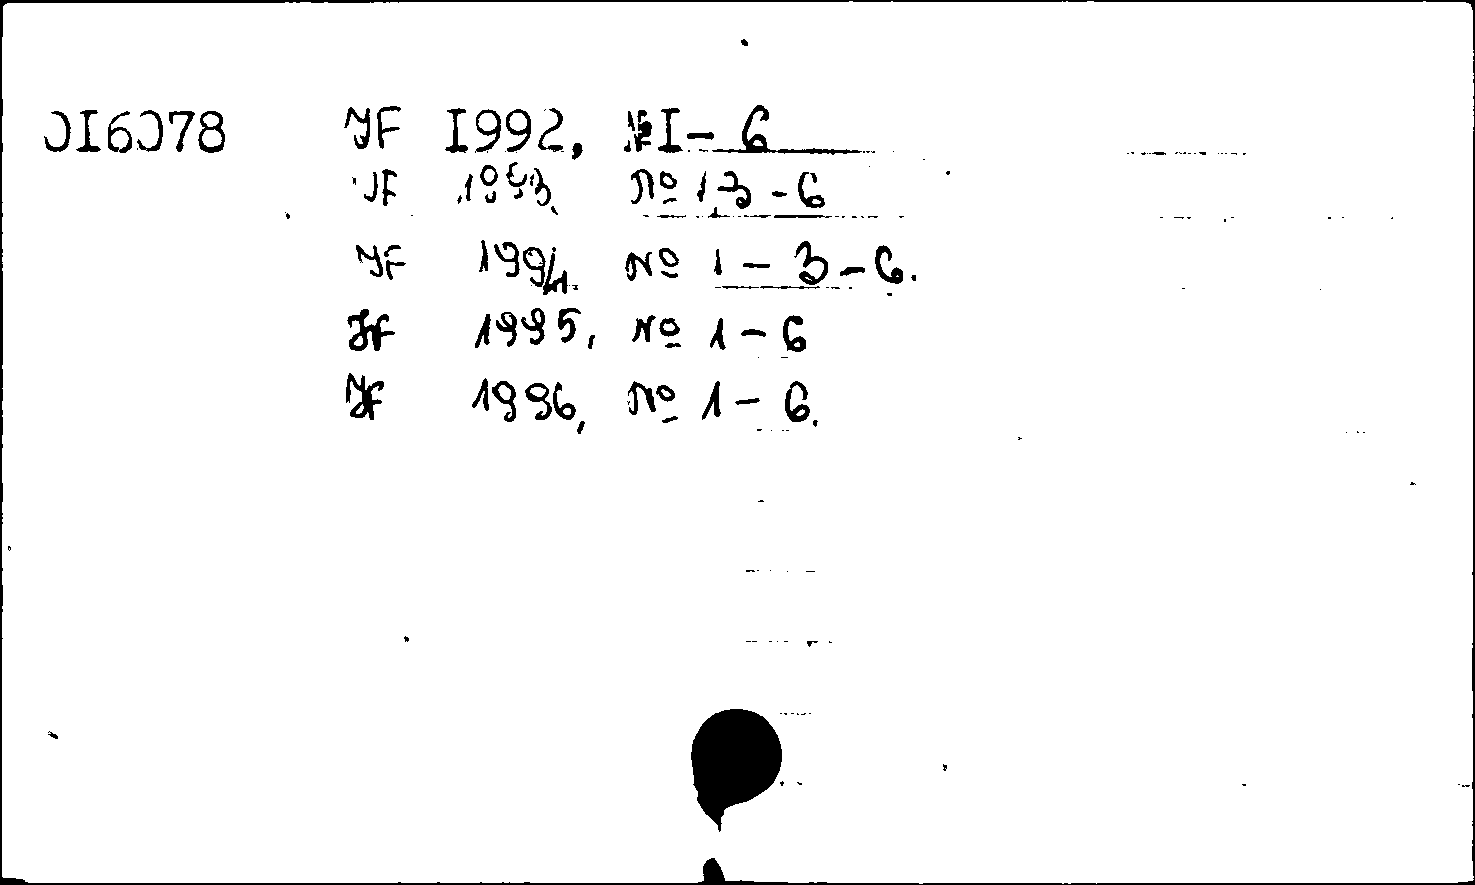 0I6078 УF I992, №I- 6
УF 1993, № 1,3 - 6
УF 1994. № 1 - 3 - 6.
УF 1995, № 1 - 6
УF 1996, № 1 - 6.